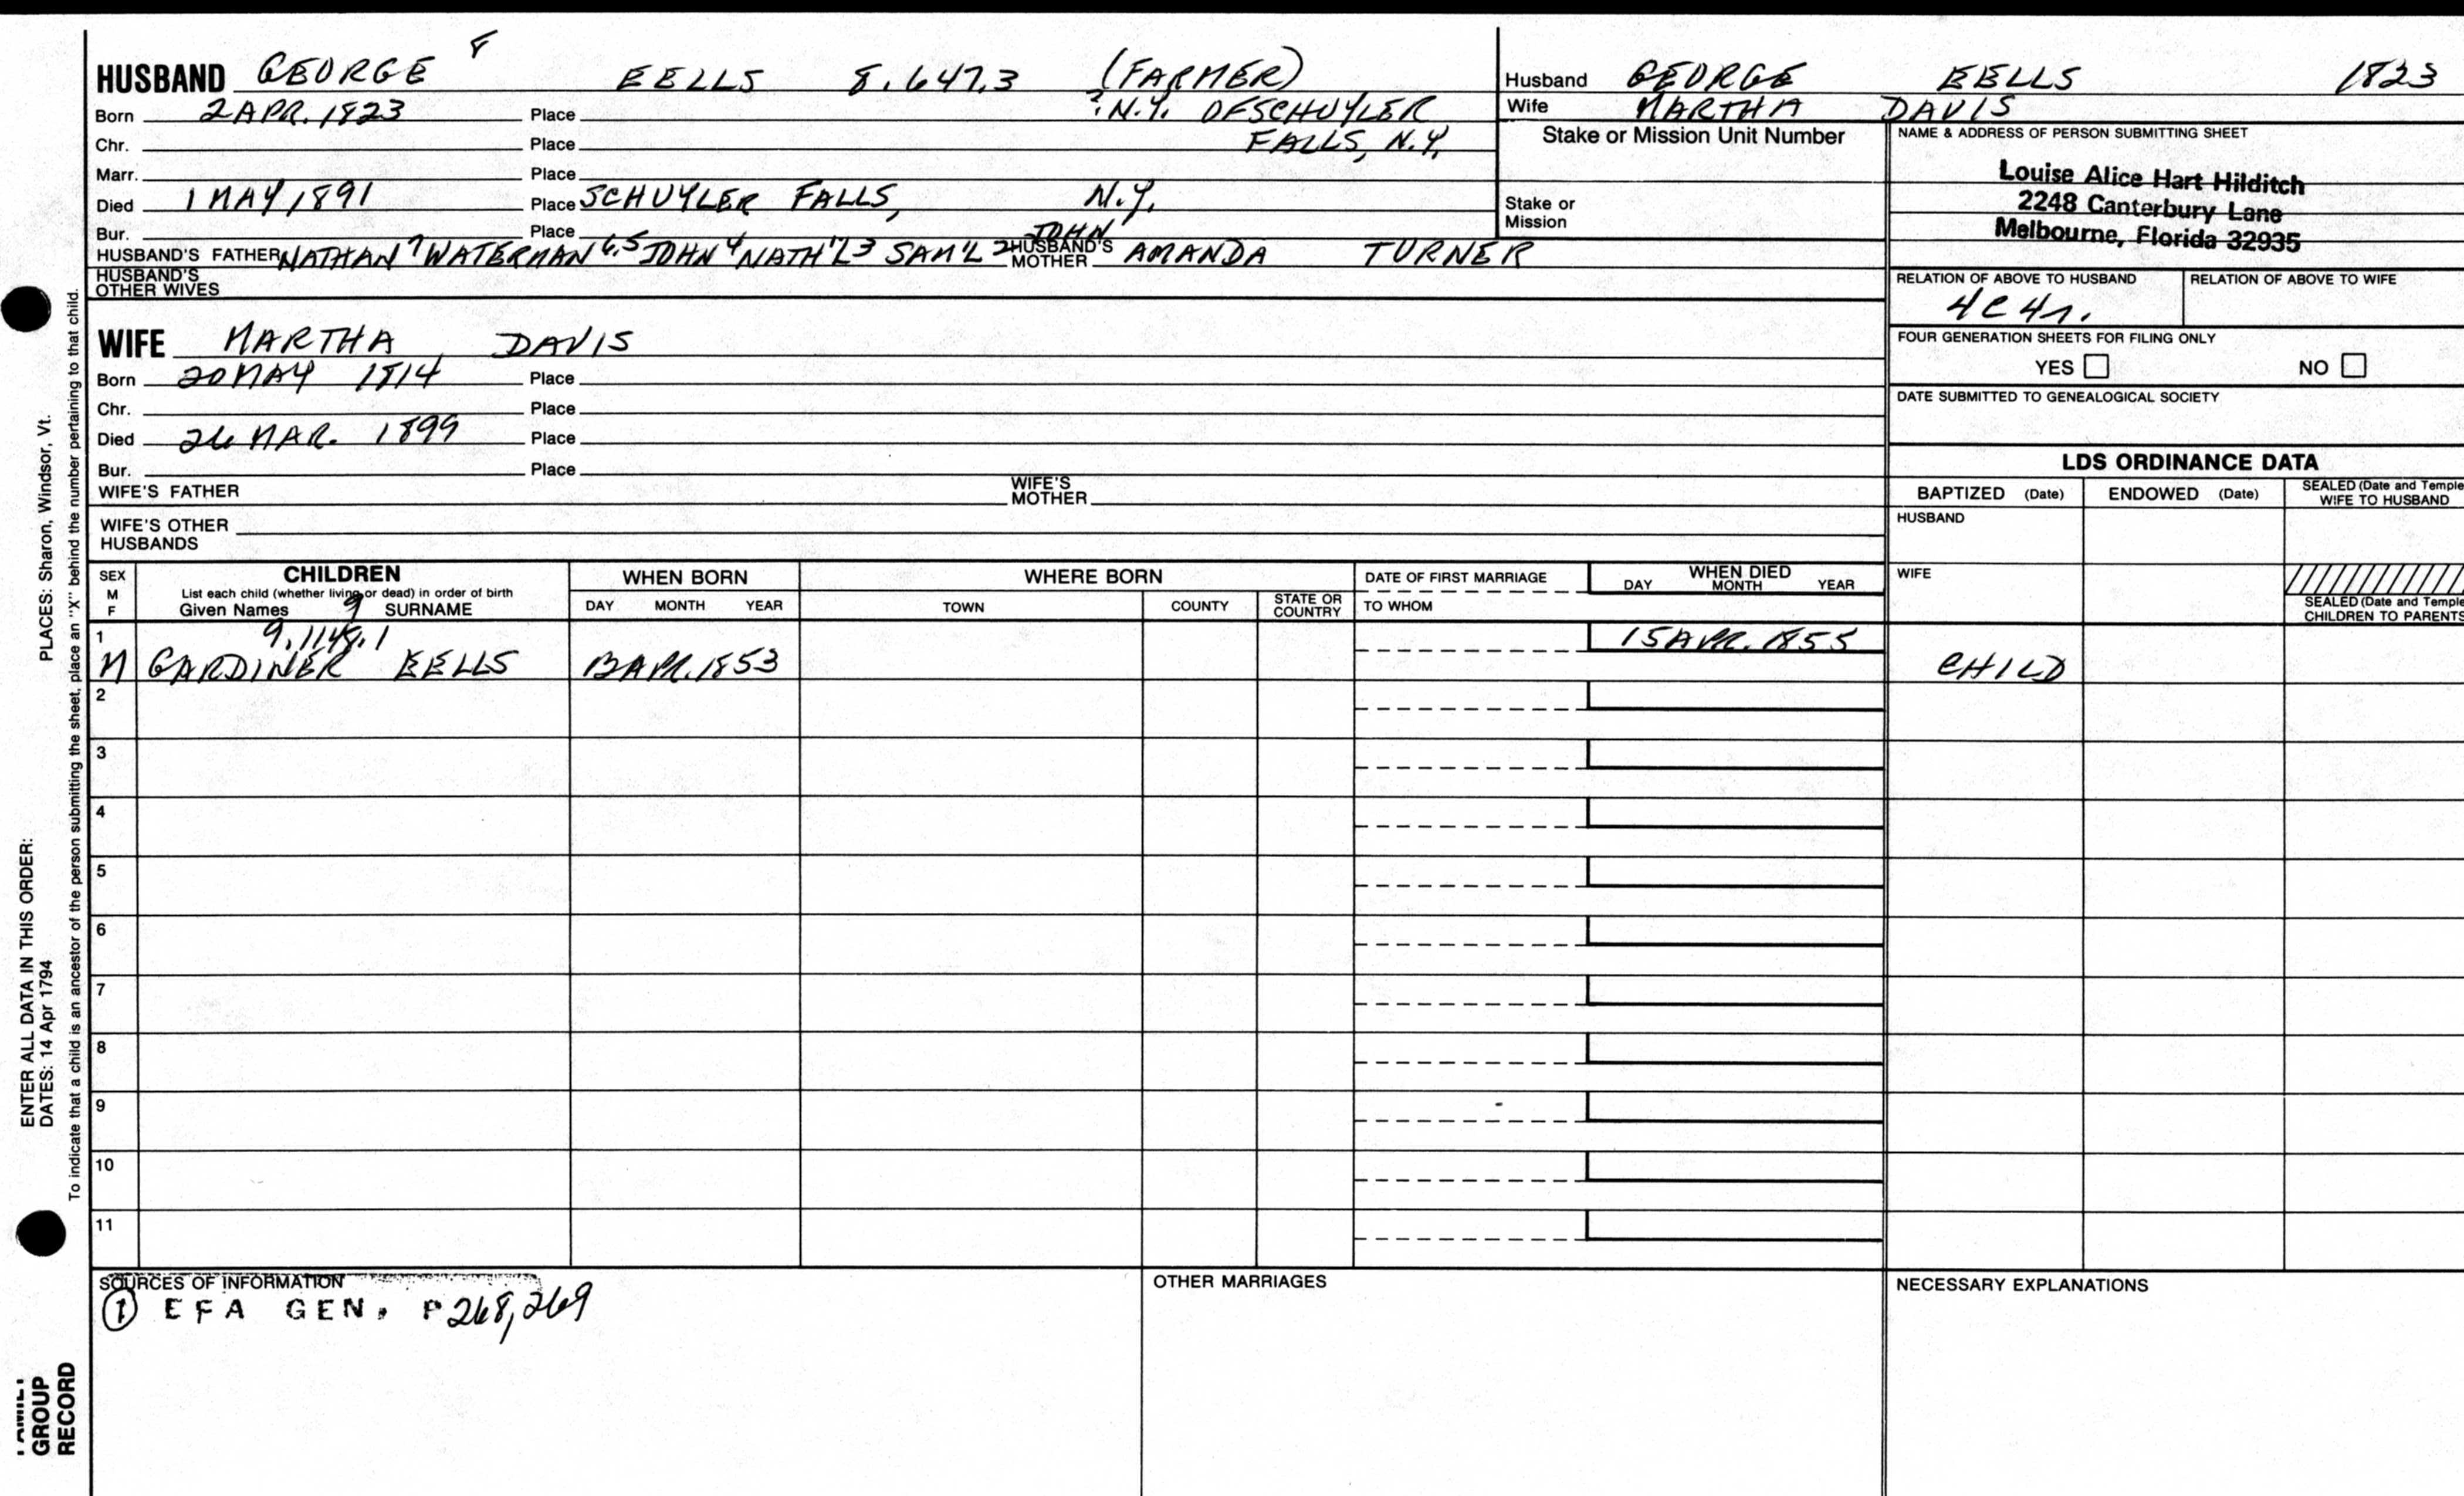 HUSBAND GEORGE 8 EELLS 8.647.3 (FARMER)
Born 2 APR. 1823 Place ? N.Y. OF SCHUYLER
Chr. Place FALLS, N.Y.
Marr. Place
Died 1 MAY 1891 Place SCHUYLER FALLS, N.Y.
Bur. Place
HUSBAND'S FATHER NATHAN 7 WATERMAN 6,5 JOHN 4 NATH'L 3 SAM'L 2 JOHN HUSBAND'S MOTHER AMANDA TURNER
HUSBAND'S OTHER WIVES
WIFE MARTHA DAVIS
Born 20 MAY 1814 Place
Chr. Place
Died 26 MAR. 1899 Place
Bur. Place
WIFE'S FATHER WIFE'S MOTHER
WIFE'S OTHER HUSBANDS
Husband GEORGE EELLS 1823
Wife MARTHA DAVIS
Stake or Mission Unit Number
Stake or
Mission
NAME & ADDRESS OF PERSON SUBMITTING SHEET
Louise Alice Hart Hilditch
2248 Canterbury Lane
Melbourne, Florida 32935
RELATION OF ABOVE TO HUSBAND RELATION OF ABOVE TO WIFE
4C4r.
FOUR GENERATION SHEETS FOR FILING ONLY
YES NO
DATE SUBMITTED TO GENEALOGICAL SOCIETY
LDS ORDINANCE DATA
BAPTIZED (Date) ENDOWED (Date) SEALED (Date and Temple
WIFE TO HUSBAND
HUSBAND
WIFE
SEALED (Date and Temple
CHILDREN TO PARENTS
SEX
M
F
CHILDREN
List each child (whether living or dead) in order of birth
Given Names 9 SURNAME
WHEN BORN
DAY MONTH YEAR
WHERE BORN
TOWN COUNTY STATE OR COUNTRY
DATE OF FIRST MARRIAGE
TO WHOM
WHEN DIED
DAY MONTH YEAR
1 9.1148.1 15 APR. 1855
M GARDINER EELLS 13 APR. 1853 CHILD
2
3
4
5
6
7
8
9
10
11
SOURCES OF INFORMATION
① EFA GEN. P 268, 269
OTHER MARRIAGES
NECESSARY EXPLANATIONS
ENTER ALL DATA IN THIS ORDER:
DATES: 14 Apr 1794
PLACES: Sharon, Windsor, Vt.
To indicate that a child is an ancestor of the person submitting the sheet, place an "X" behind the number pertaining to that child.
GROUP
RECORD